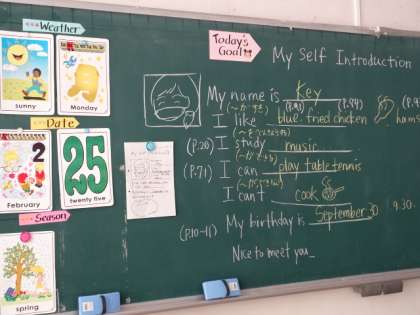 Weather
sunny
Monday
Date
2
February
25
twenty five
Season
spring
Today's
Goal!!
My Self Introduction
My name is Key
I like blue. fried chicken
(P.94)
(P.20) I study music
(P.71) I can play table tennis
I can't cook
(P.10-11) My birthday is September 30
9.30.
Nice to meet you